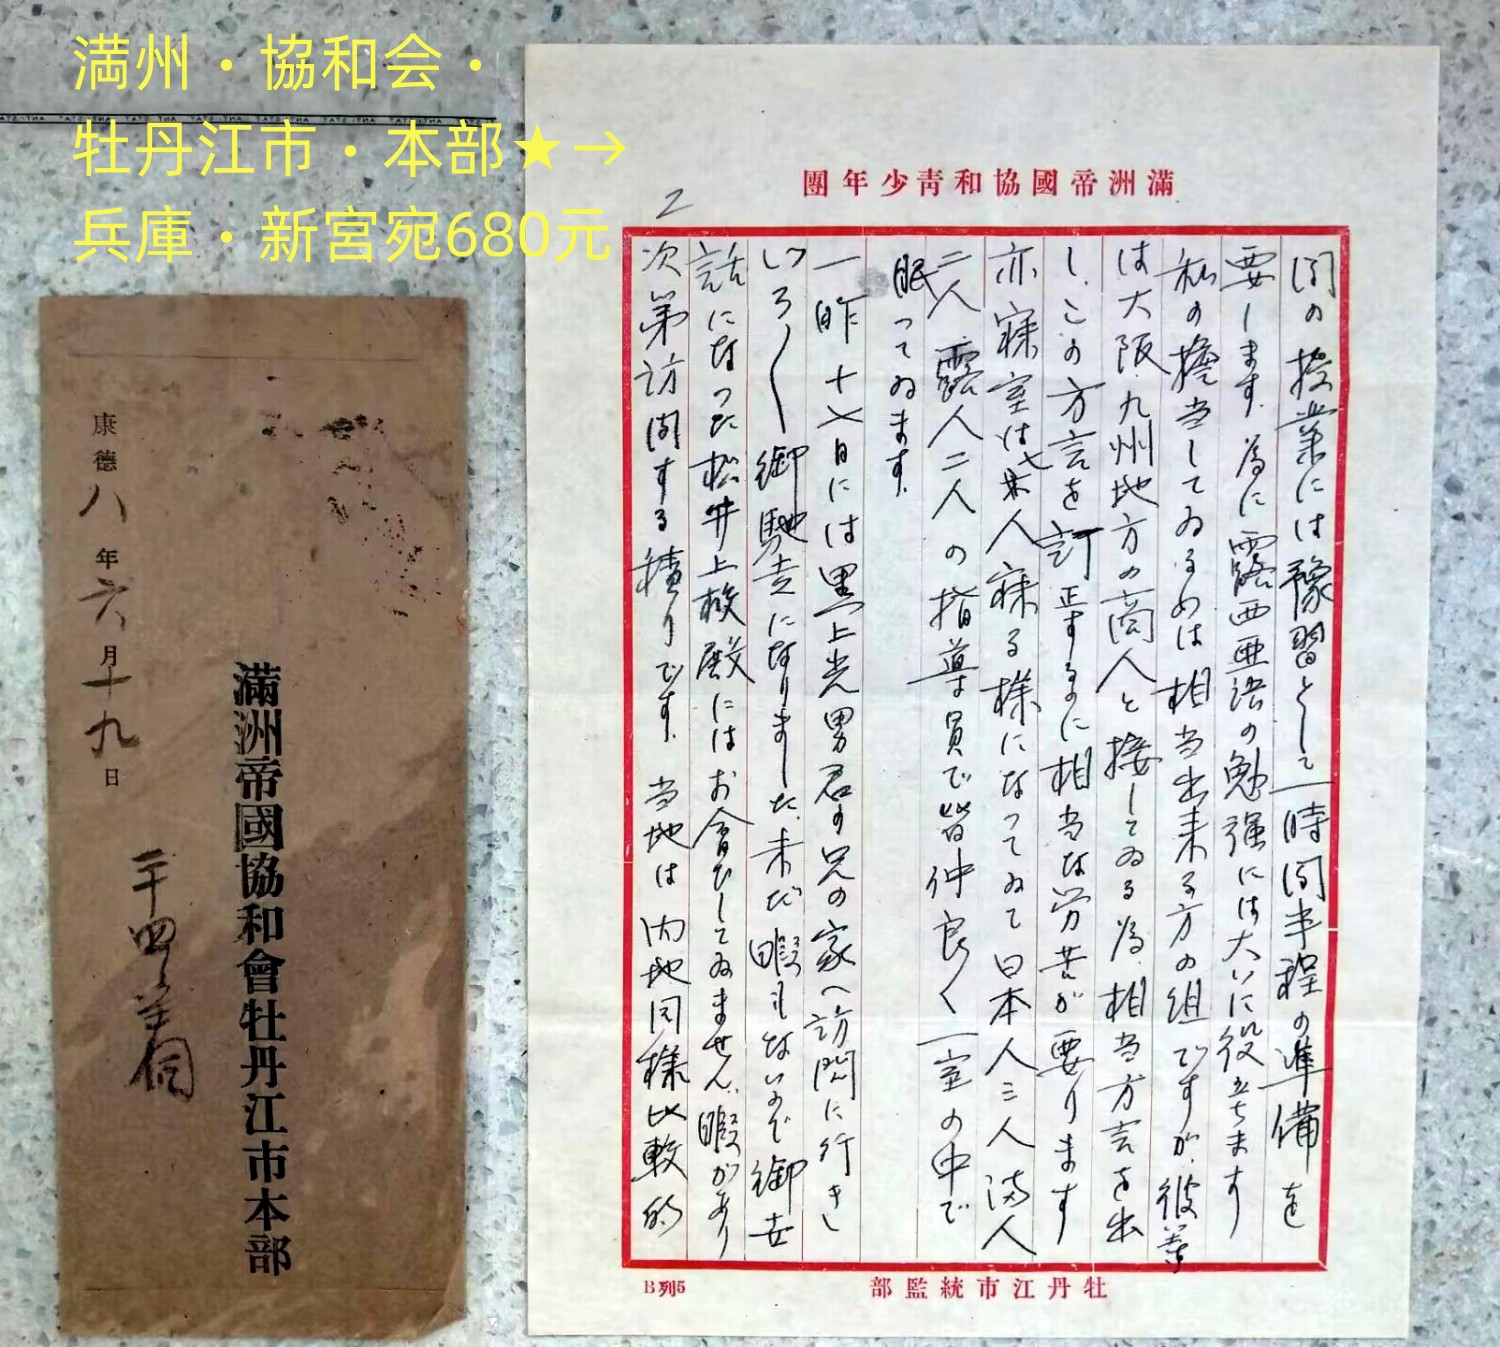 満州・協和会・
牡丹江市・本部★→
兵庫・新宮宛680元
滿洲帝國協和會牡丹江市本部
康德八年六月十九日
二十四
滿洲帝國協和靑少年團
2
間の授業には豫習として一時間半程の準備を
要します。為に露西亜語の勉強には大いに役立ちます
私の擔当してゐるのは相当出来る方の組ですが、彼等
は大阪、九州地方の商人と接してゐる為、相当方言を出
し、この方言を訂正するのに相当な労苦が要ります
亦寐室は七人寐る様になってゐて日本人三人満人
二人露人二人の指導員で皆仲良く一室の中で
眠ってゐます。
一昨十七日には黒上光男君の兄の家へ訪問に行きし
いろ〱御馳走になりました、未だ暇もないので御世
話になった松井上校殿にはお會ひしてゐません、暇があり
次第訪問する積りです。当地は内地同様比較的
牡丹江市統監部
B列5